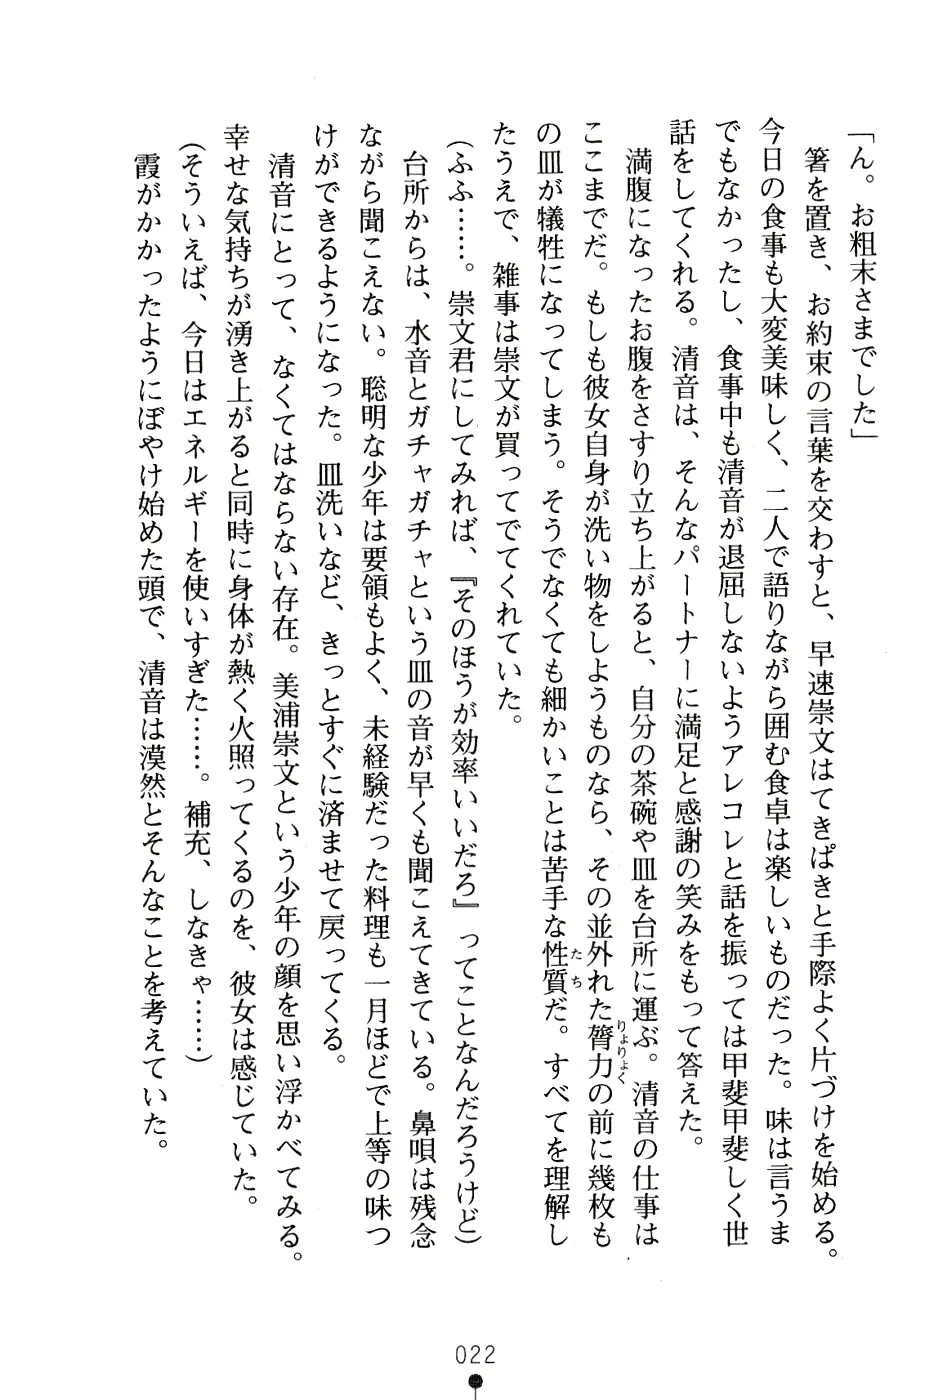 「ん。お粗末さまでした」
　箸を置き、お約束の言葉を交わすと、早速崇文はてきぱきと手際よく片づけを始める。
今日の食事も大変美味しく、二人で語りながら囲む食卓は楽しいものだった。味は言うま
でもなかったし、食事中も清音が退屈しないようアレコレと話を振っては甲斐甲斐しく世
話をしてくれる。清音は、そんなパートナーに満足と感謝の笑みをもって答えた。
　満腹になったお腹をさすり立ち上がると、自分の茶碗や皿を台所に運ぶ。清音の仕事は
ここまでだ。もしも彼女自身が洗い物をしようものなら、その並外れた膂力の前に幾枚も
の皿が犠牲になってしまう。そうでなくても細かいことは苦手な性質だ。すべてを理解し
たうえで、雑事は崇文が買ってでてくれていた。
（ふふ……。崇文君にしてみれば、『そのほうが効率いいだろ』ってことなんだろうけど）
　台所からは、水音とガチャガチャという皿の音が早くも聞こえてきている。鼻唄は残念
ながら聞こえない。聡明な少年は要領もよく、未経験だった料理も一月ほどで上等の味つ
けができるようになった。皿洗いなど、きっとすぐに済ませて戻ってくる。
　清音にとって、なくてはならない存在。美浦崇文という少年の顔を思い浮かべてみる。
幸せな気持ちが湧き上がると同時に身体が熱く火照ってくるのを、彼女は感じていた。
（そういえば、今日はエネルギーを使いすぎた……。補充、しなきゃ……）
　霞がかかったようにぼやけ始めた頭で、清音は漠然とそんなことを考えていた。
022